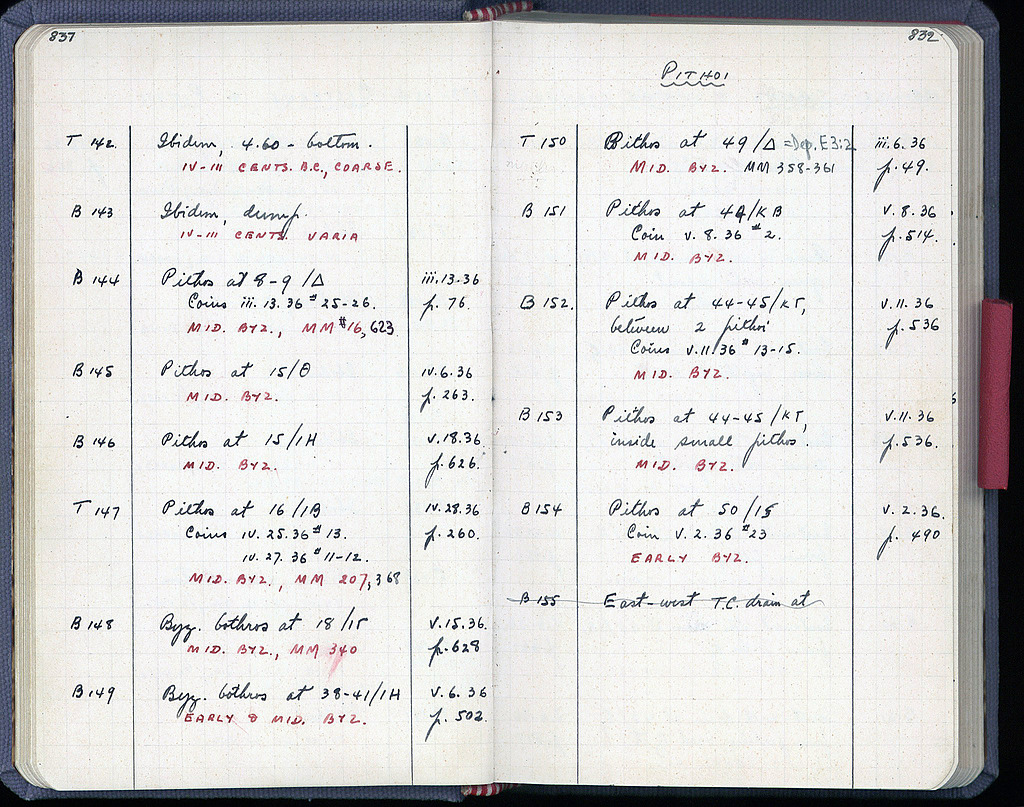 837
T 142. Ibidem, 4.60 - bottom.
IV-III CENTS. B.C., COARSE.
B 143 Ibidem, dump.
IV-III CENTS. VARIA
B 144 Pithos at 8-9/Δ iii.13.36
Coins iii. 13. 36 # 25-26. p. 76.
MID. BYZ., MM #16, 623
B 145 Pithos at 15/Θ IV.6.36
MID. BYZ. p. 263.
B 146 Pithos at 15/IH V.18.36.
MID. BYZ. p. 626.
T 147 Pithos at 16/IB IV.28.36
Coins IV. 25.36 # 13. p. 260.
IV. 27. 36 # 11-12.
MID. BYZ., MM 207, 368
B 148 Byz. bothros at 18/IΓ V.15.36.
MID. BYZ., MM 340 p. 628
B 149 Byz. bothros at 38-41/IH V. 6. 36
EARLY & MID. BYZ. p. 502.
832
PITHOI
T 150 Pithos at 49/Δ =Dep. E3:2 iii.6.36
MID. BYZ. MM 358-361 p. 49.
B 151 Pithos at 44/KB V. 8. 36
Coin V. 8. 36 # 2. p. 514.
MID. BYZ.
B 152. Pithos at 44-45/KΓ, V. 11. 36
between 2 pithoi p. 536
Coins V.11.36 # 13-15.
MID. BYZ.
B 153 Pithos at 44-45/KΓ, V. 11. 36
inside small pithos. p. 536.
MID. BYZ.
B 154 Pithos at 50/IS V. 2. 36.
Coin V. 2. 36 #23 p. 490
EARLY BYZ.
B 155 East-west T.C. drain at